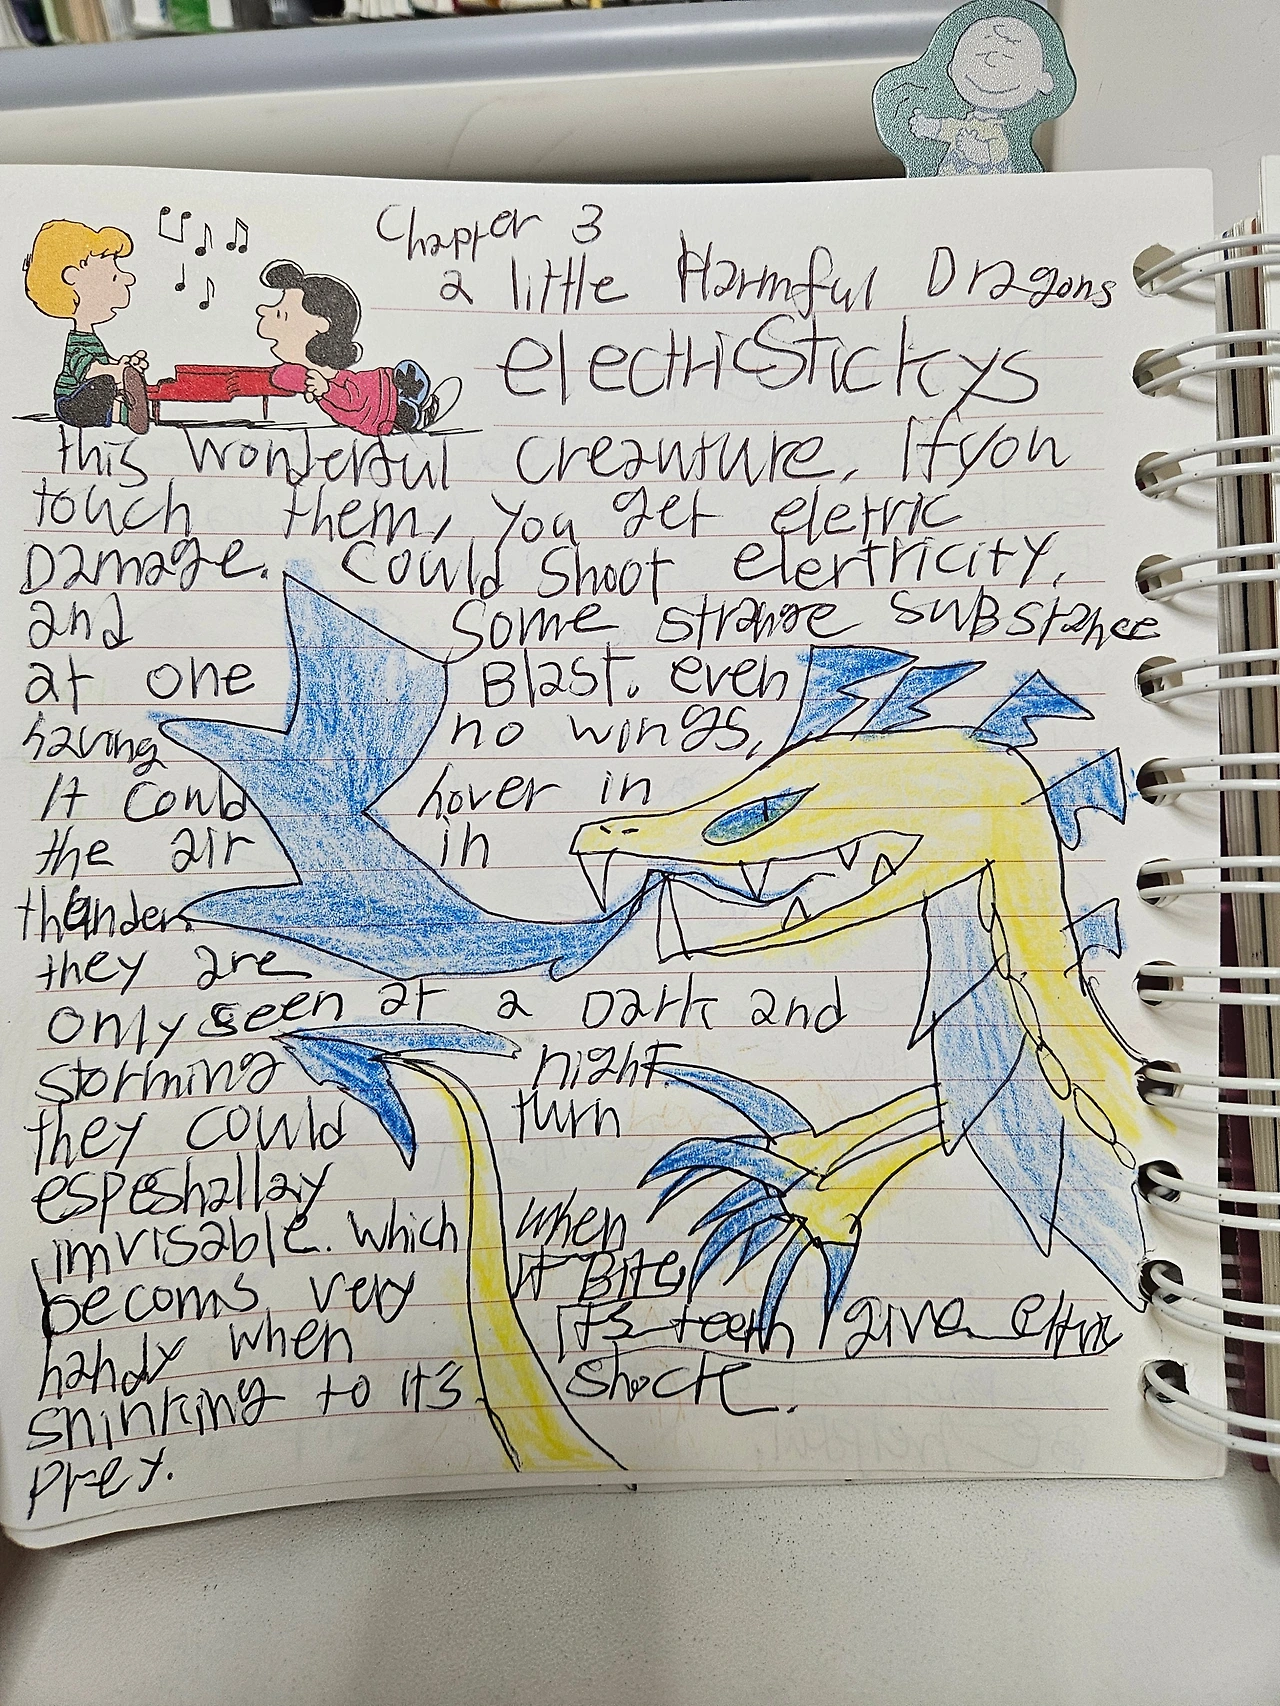 Chapter 3
a little Harmful Dragons
electricStickys
this wonderful creauture, If you
touch them, you get eletric
Damage. Could shoot elertricity,
and some strange substance
at one Blast. even
having no wings,
It could hover in
the air in
thunder.
they are
only seen at a Dark and
storming night.
they could turn
espeshallay
imvisable. which
becoms very
handy when
sninking to it's
prey.
when
it Bite
it's teeth give eltric
shock.